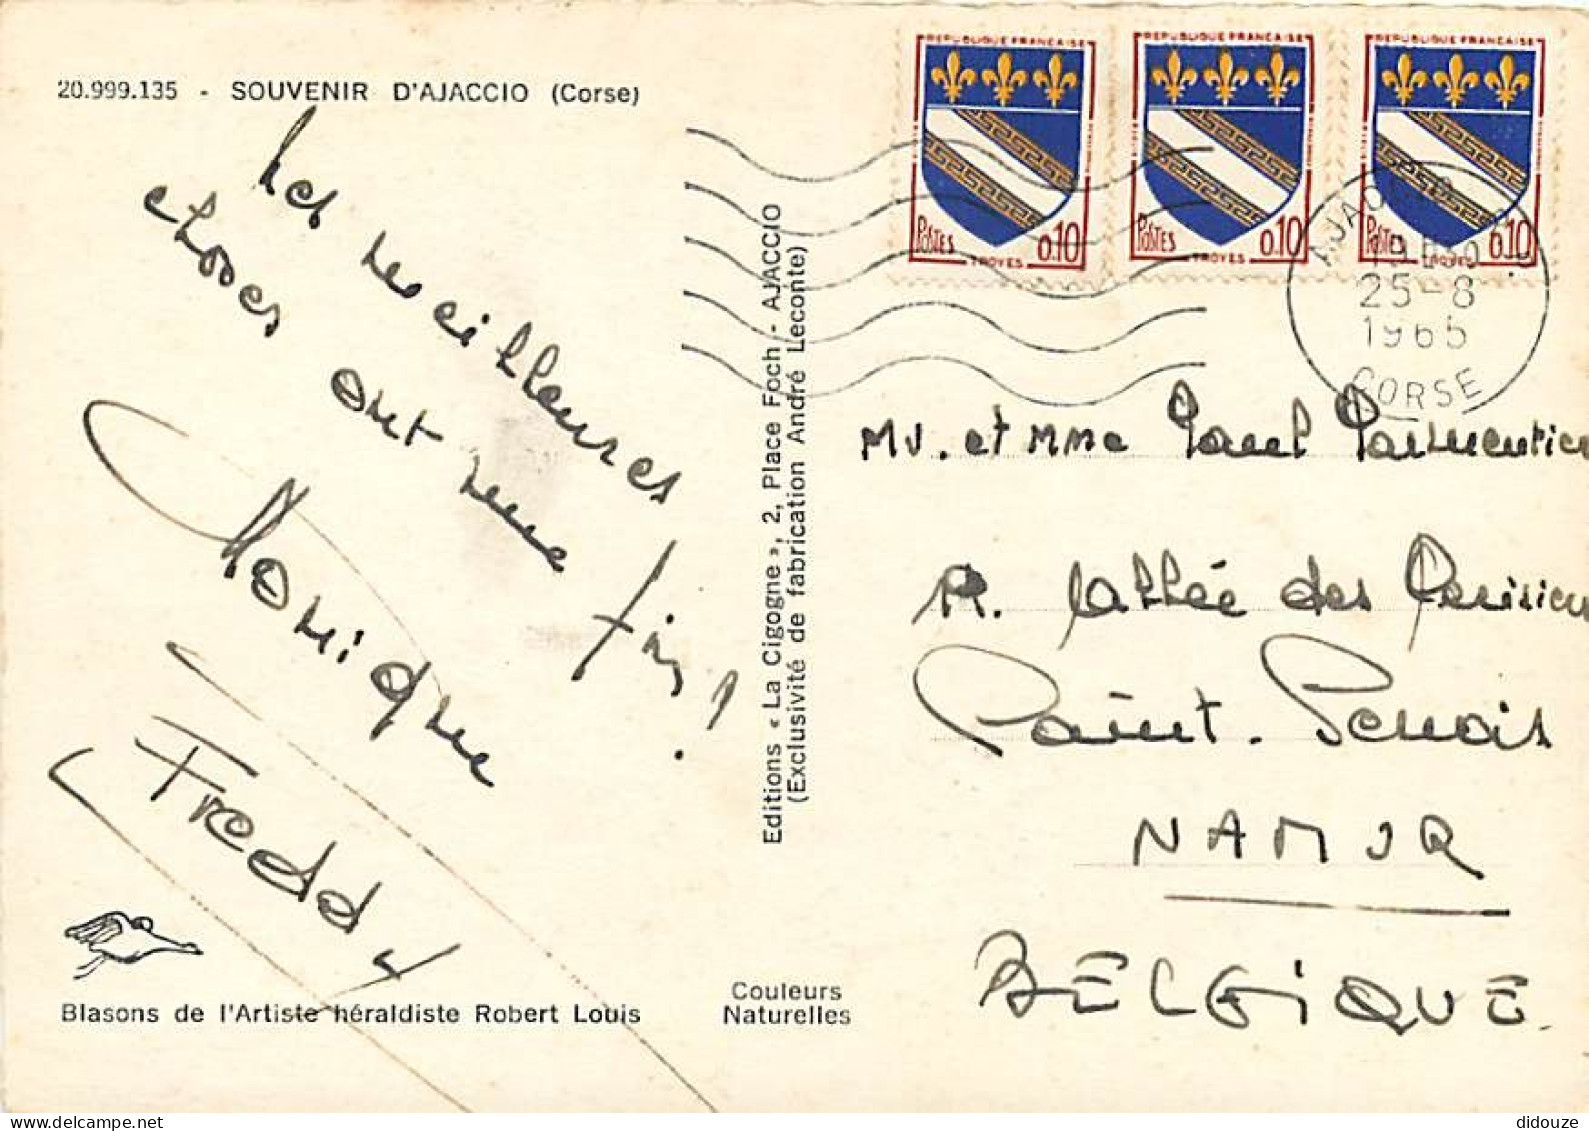 20.999.135 - SOUVENIR D'AJACCIO (Corse)
Les meilleures
choses ont une fin !
Monique
Freddy
Blasons de l'Artiste héraldiste Robert Louis
Couleurs
Naturelles
Editions « La Cigogne », 2, Place Foch - AJACCIO
(Exclusivité de fabrication André Leconte)
REPUBLIQUE FRANCAISE
POSTES 0.10
TROYES
REPUBLIQUE FRANCAISE
POSTES 0.10
TROYES
REPUBLIQUE FRANCAISE
POSTES 0.10
TROYES
AJACCIO
25-8
1965
CORSE
Mr. et Mme Paul Parmentier
allée des
Saint-Servais
NAMUR
BELGIQUE
didouze